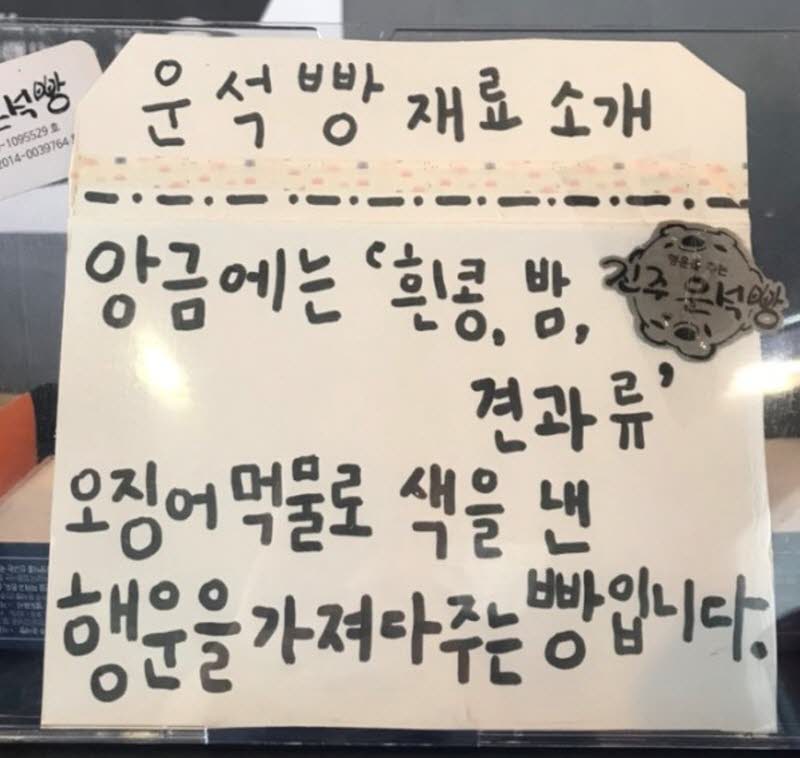 운석빵 재료 소개
앙금에는 '흰콩, 밤,
견과류'
오징어먹물로 색을 낸
행운을 가져다주는 빵입니다.
행운을 주는
진주 운석빵
석빵
-1095529 호
2014-0039764